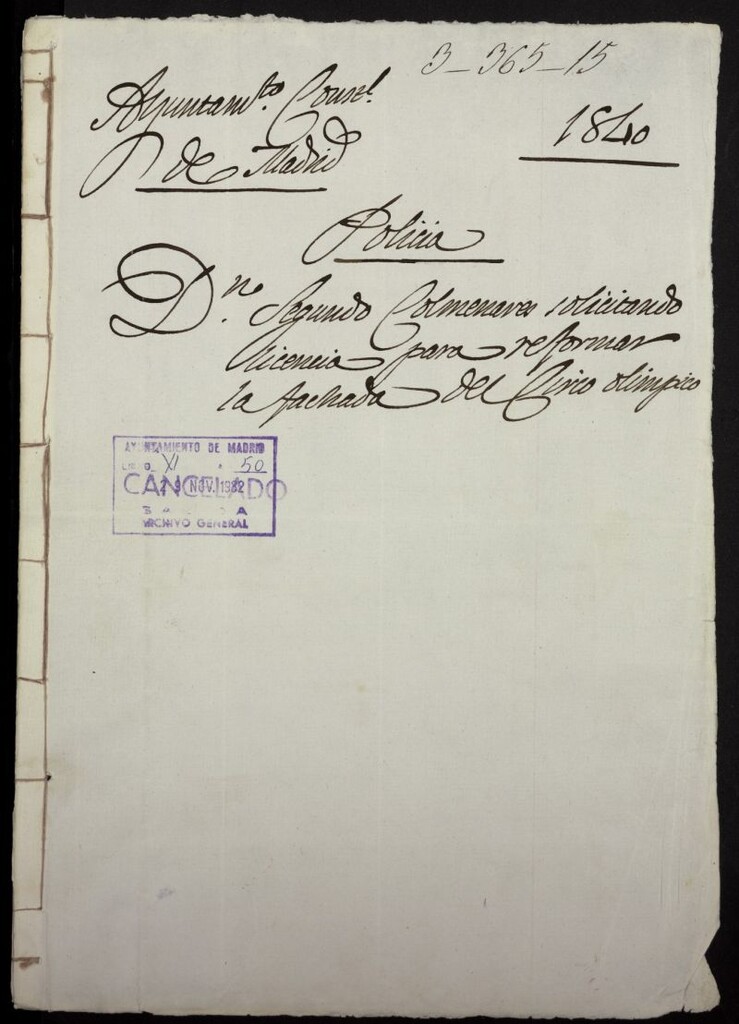 3-365-15
Ayuntamto. Constl.
de Madrid
1840
Policia
Dn. Segundo Colmenares solicitando
licencia para reformar
la fachada del Circo olimpico
AYUNTAMIENTO DE MADRID
XI 50
CANCELADO
29 NOV. 1982
ARCHIVO GENERAL